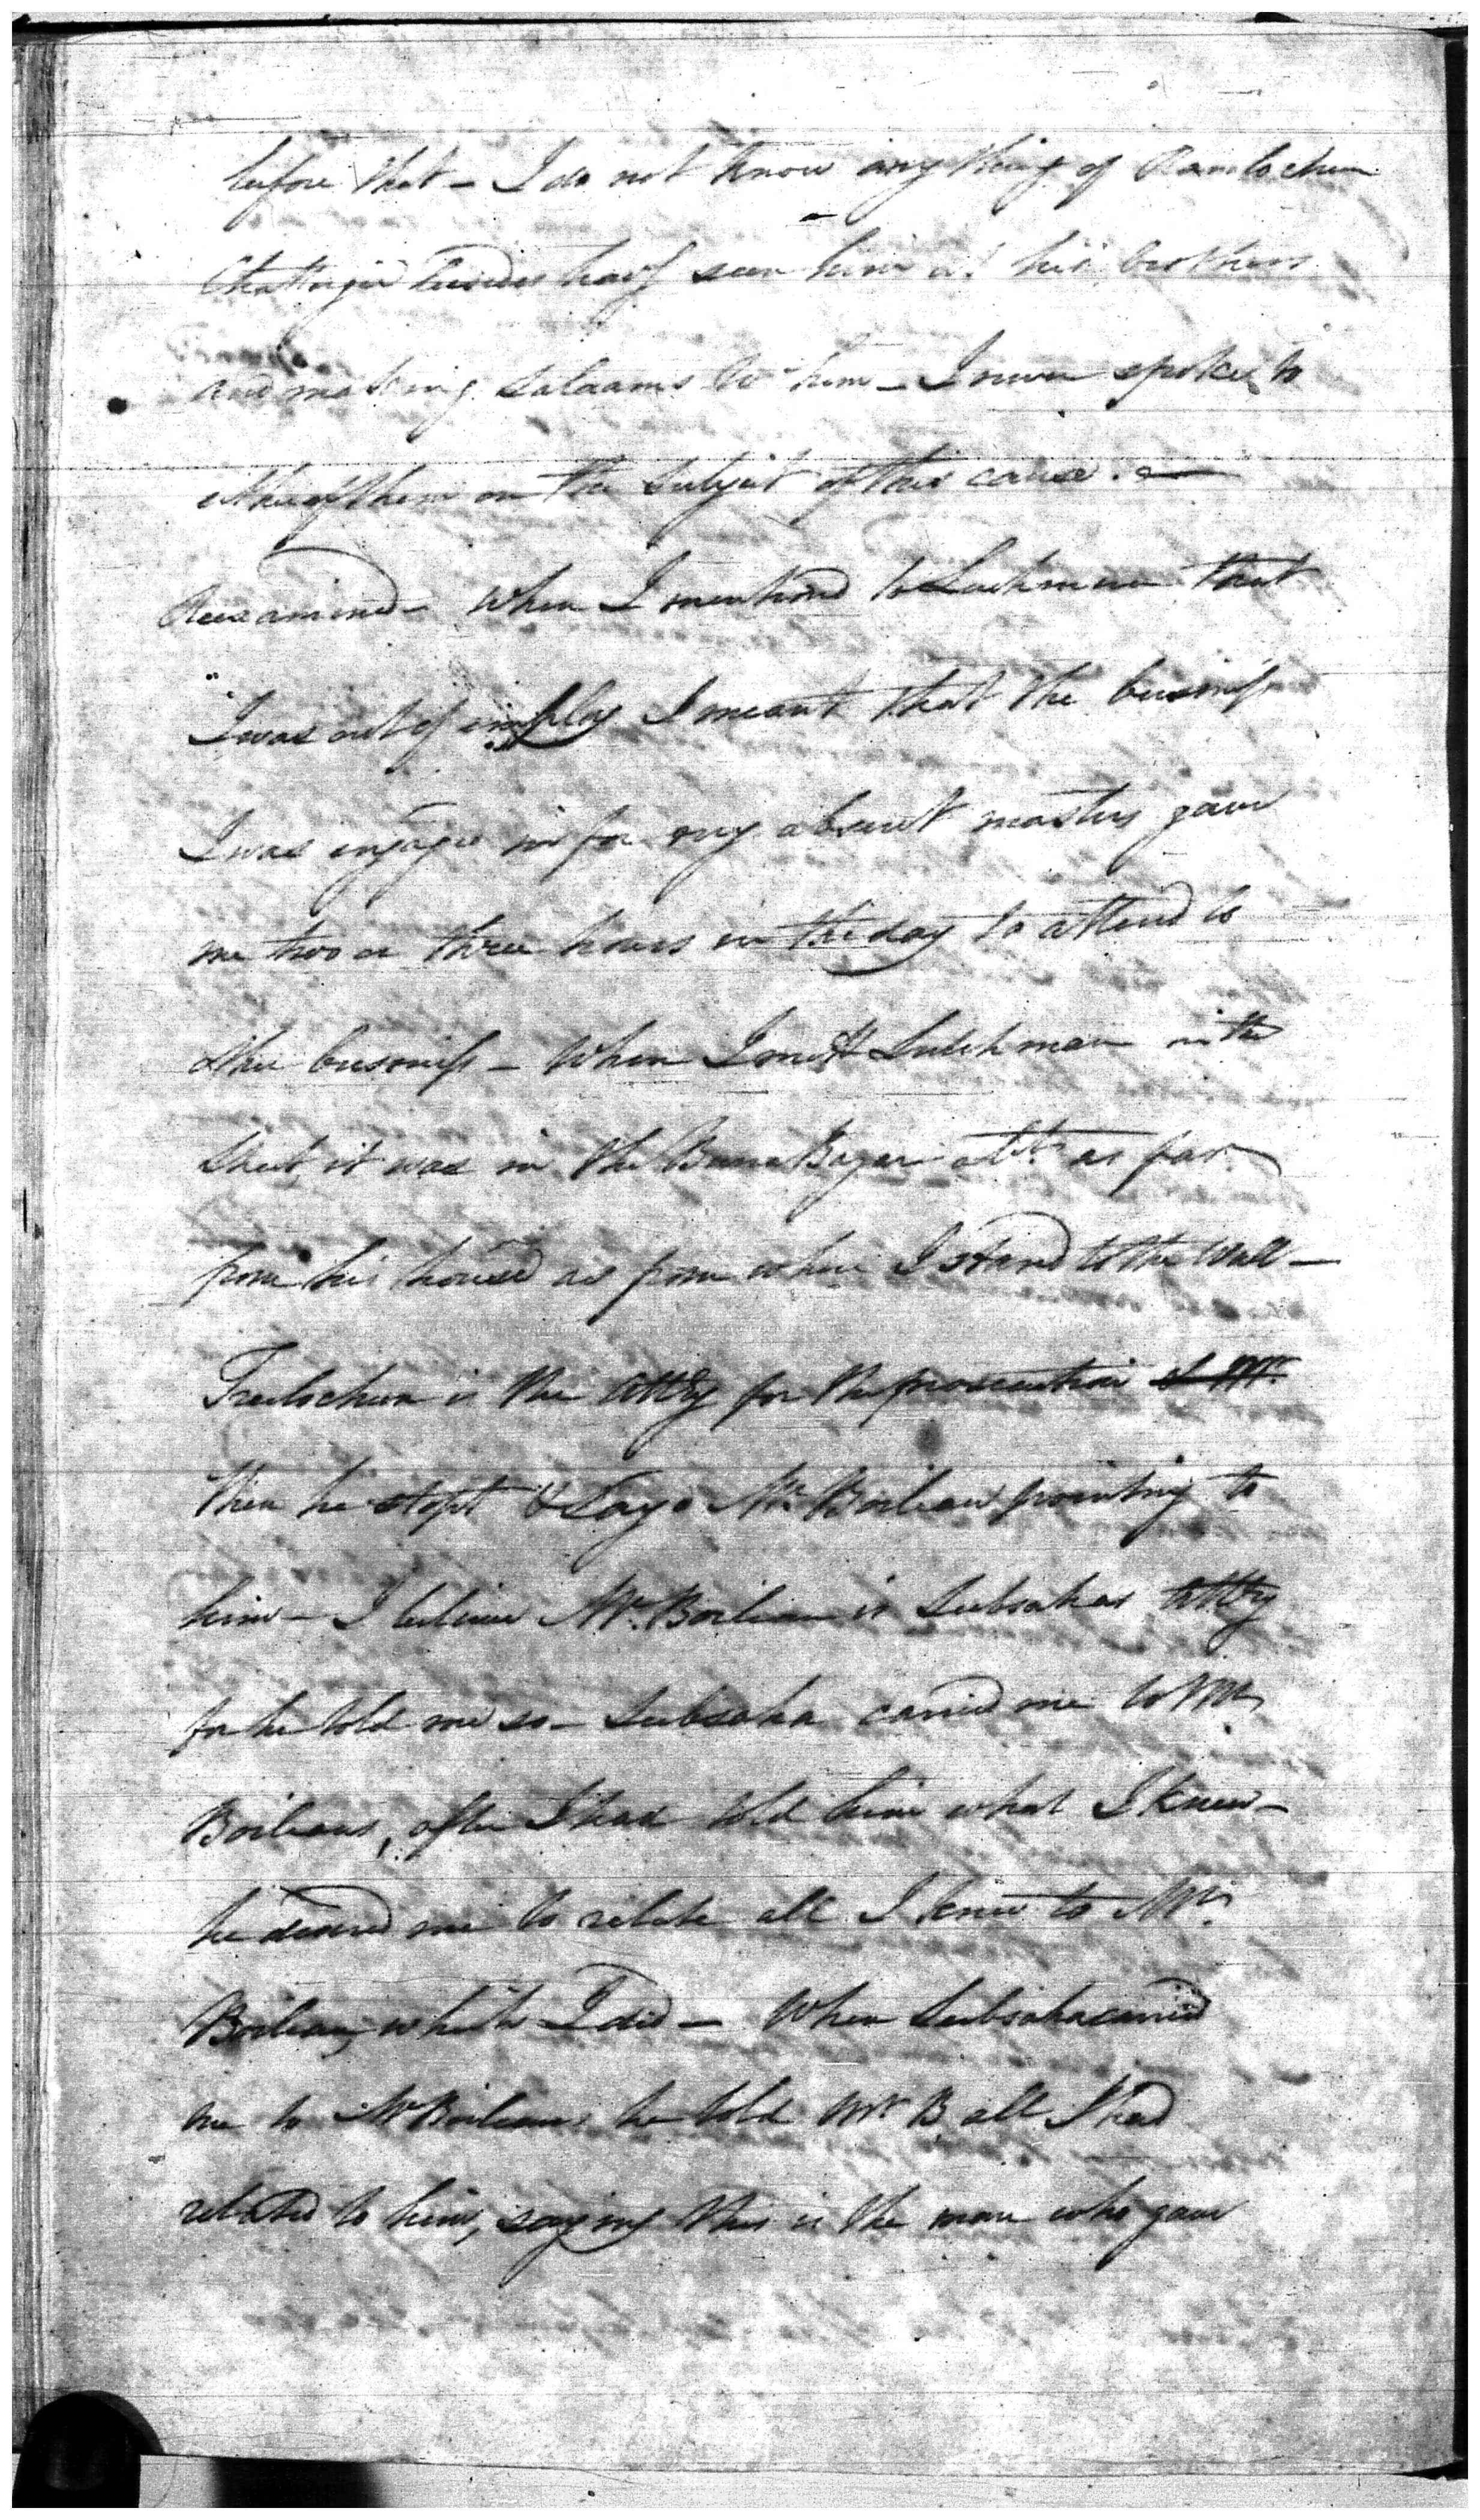 before that - I do not know any thing of Ramlochun
Chattagie besides hav͞g seen him at his brothers
and making salaams to him - I never spoke to
either of them on the subject of this cause. -
Reexamined - When I mentiond to Lutchman that
I was out of employ I meant that the business
I was engaged in for my absent masters gave
me two or three hours in the day to attend to
other business - When I mett Lutchman in the
Street, it was in the Burra Bazar abt. as far
from his house as from where I stand to the Wall -
Treelochun is the Atty for the prosecution & Mr.
then he stopt & says Mr. Boileau pointing to
him - I believe Mr. Boileau is Subsahas Atty
for he told me so - Subsaha carried me to Mr
Boileaus, after I had told him what I knew -
he desired me to relate all I knew to Mr.
Boileau, which I did - When Subsaha carried
me to Mr Boileaus he told Mr B all I had
related to him, saying this is the man who gave